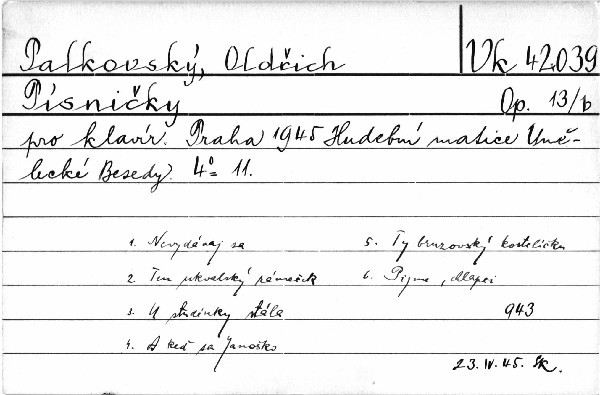 Palkovský, Oldřich Vk 42.039
Písničky Op. 13/b
pro klavír. Praha 1945 Hudební matice Umě-
lecké Besedy. 4° 11.
1. Nevydávaj sa 5. Ty bruzovský kostelíčku
2. Ten hukvalský zámeček 6. Pijme, chlapci
3. U studénky stála 943
4. A keď sa Janoško
23.IV.45. Sk.